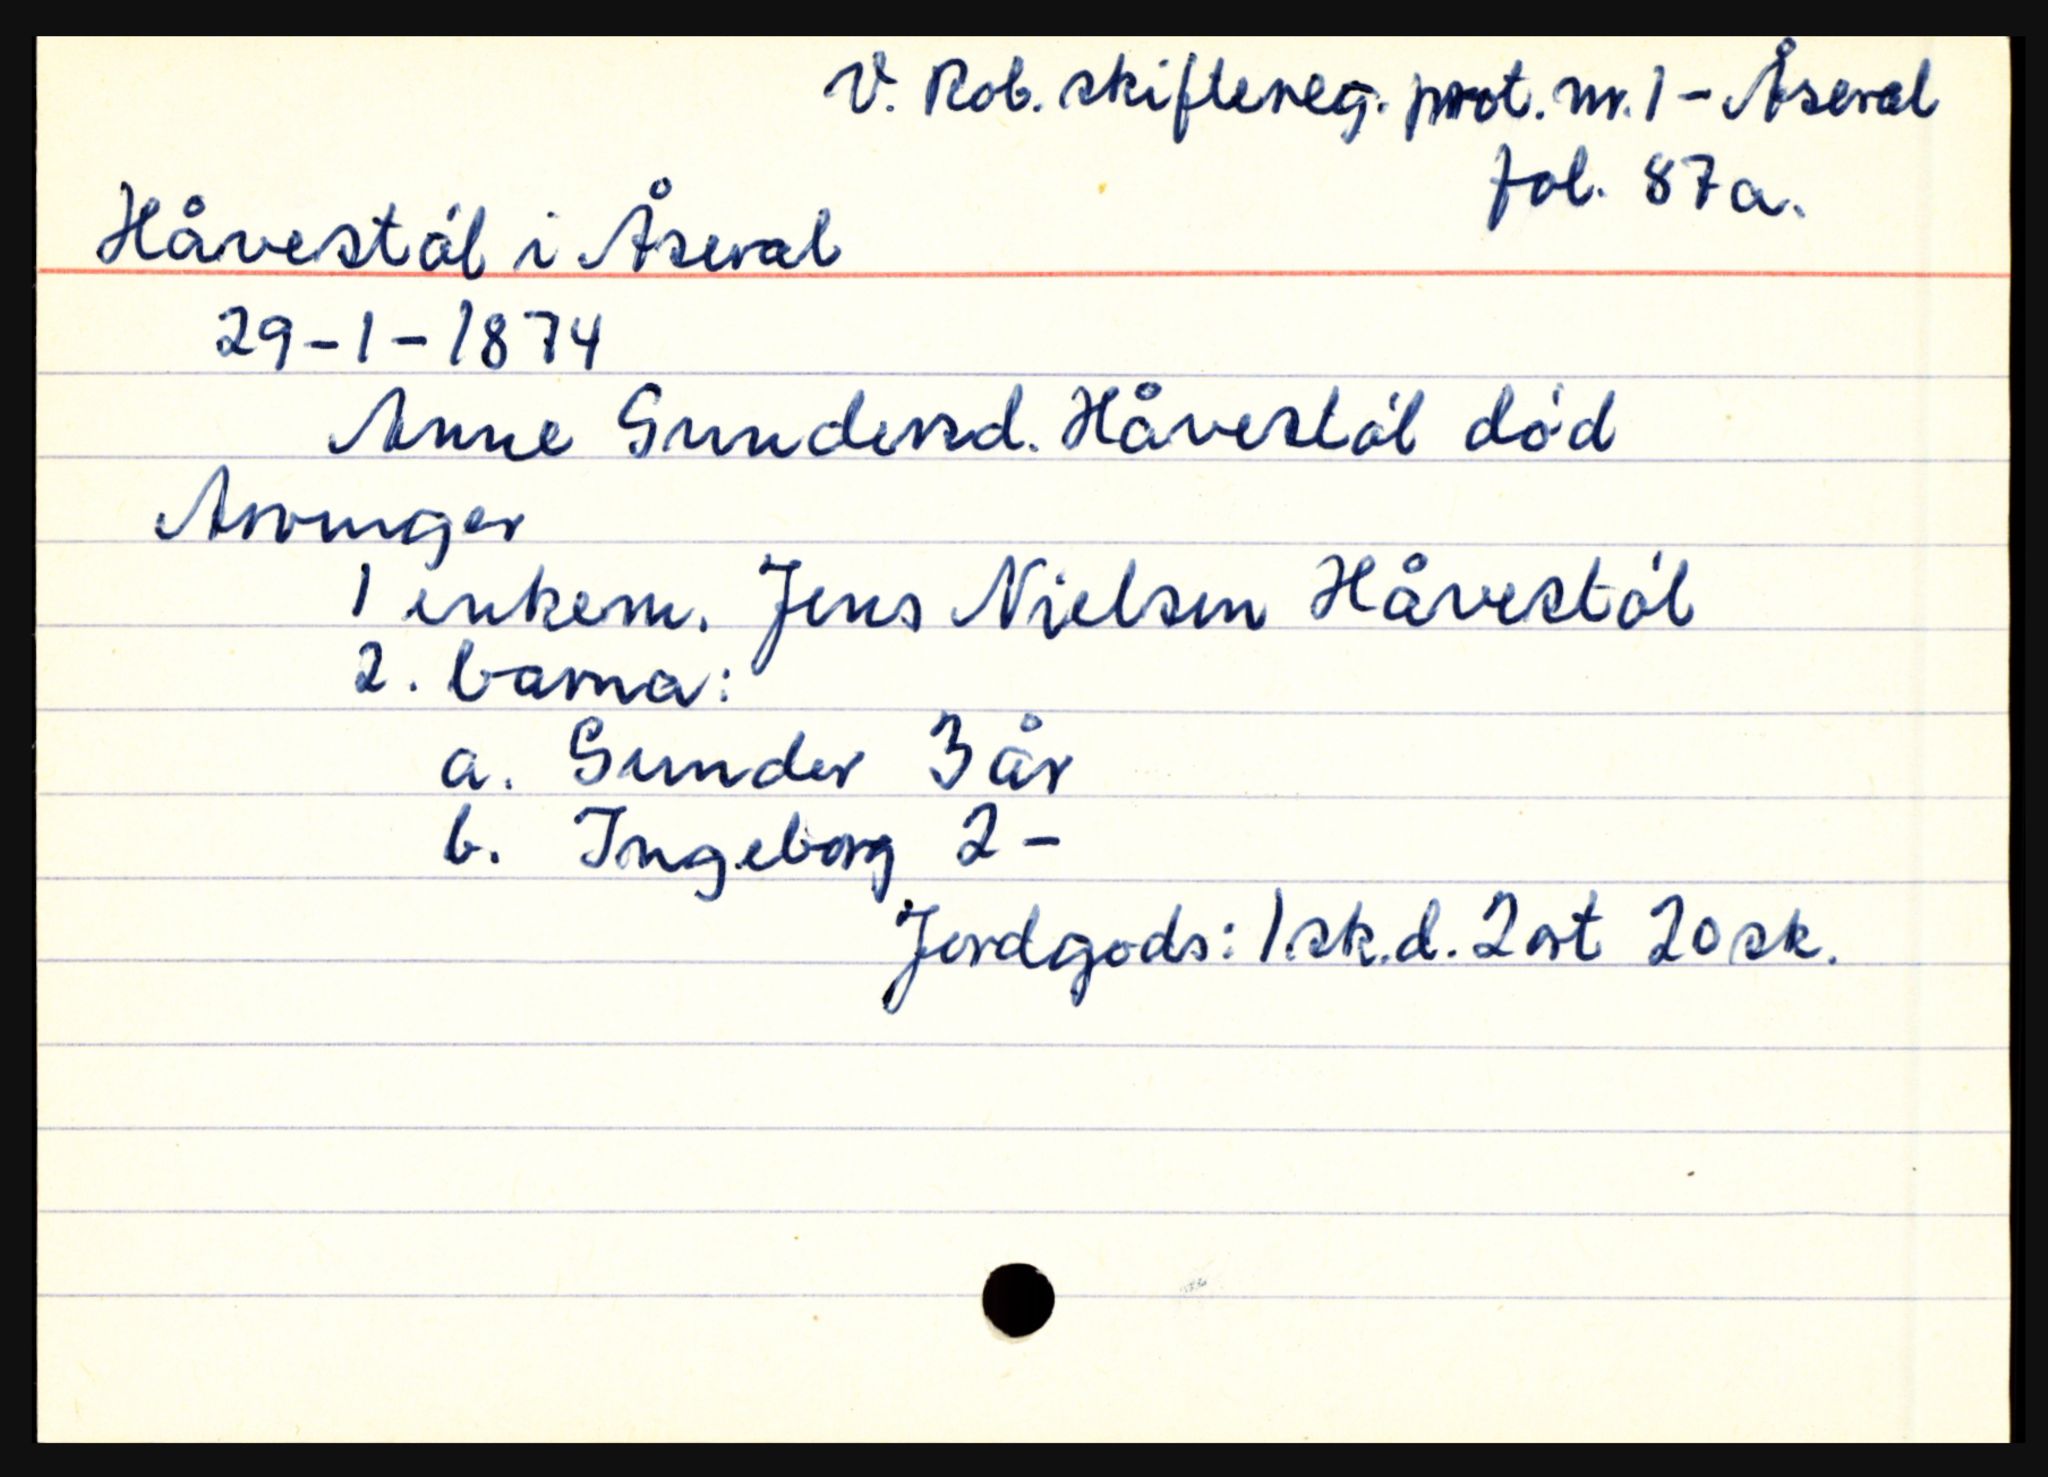 V. Rob. skiftereg. prot. nr. 1 - Åseral
fol. 87a.
Håvestøl i Åseral
29-1-1874
Anne Gundersd. Håvestøl død
Arvinger
1 enkem. Jens Nielsen Håvestøl
2. barna:
a. Gunder 3 år
b. Ingeborg 2 -
Jordgods: 1.sk.d. 2 ort 20 sk.